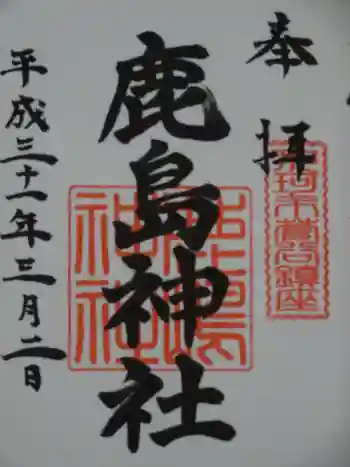 奉拝
鹿島神社
平成三十一年三月二日
鹿嶋神社